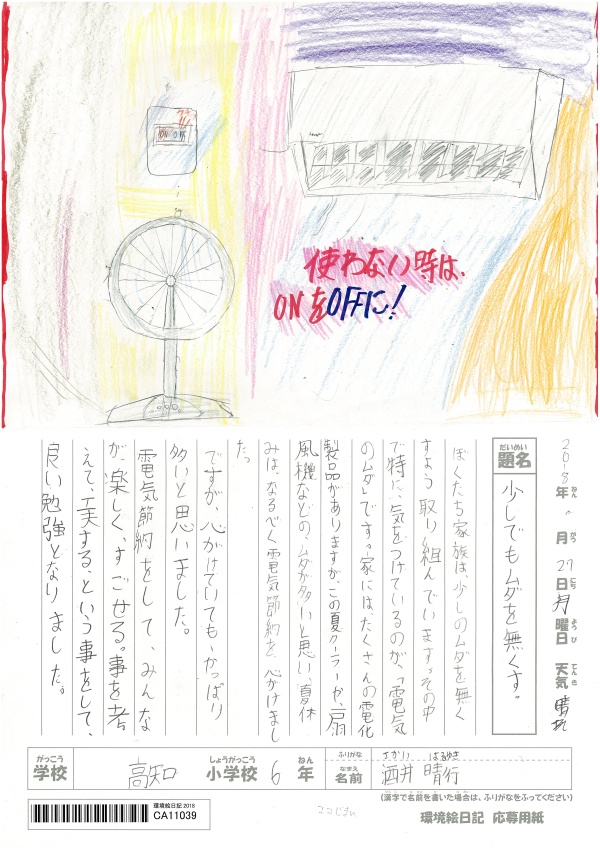 ON OFF
使わない時は、
ONをOFFに!
2018年 月 27日 月曜日 天気 晴れ
ねん がつ にち ようび てんき
だいめい
題名 少しでもムダを無くす。
ぼくたち家族は、少しのムダを無く
すよう取り組んでいます。その中
で特に、気をつけているのが、「電気
のムダ」です。家には、たくさんの電化
製品がありますが、この夏クーラーや、扇
風機などの、ムダが多いと思い、夏休
みは、なるべく電気節約を、心がけまし
た。
ですが、心がけていても、やっぱり
多いと思いました。
電気節約をして、みんな
が、楽しく、すごせる。事を考
えて、工夫する、という事をして、
良い勉強となりました。
がっこう しょうがっこう ねん ふりがな さかい はるゆき
学校 高知 小学校 6 年 なまえ 名前 酒井 晴行
(漢字で名前を書いた場合は、ふりがなをふってください)
環境絵日記 2018
CA11039
環境絵日記 応募用紙